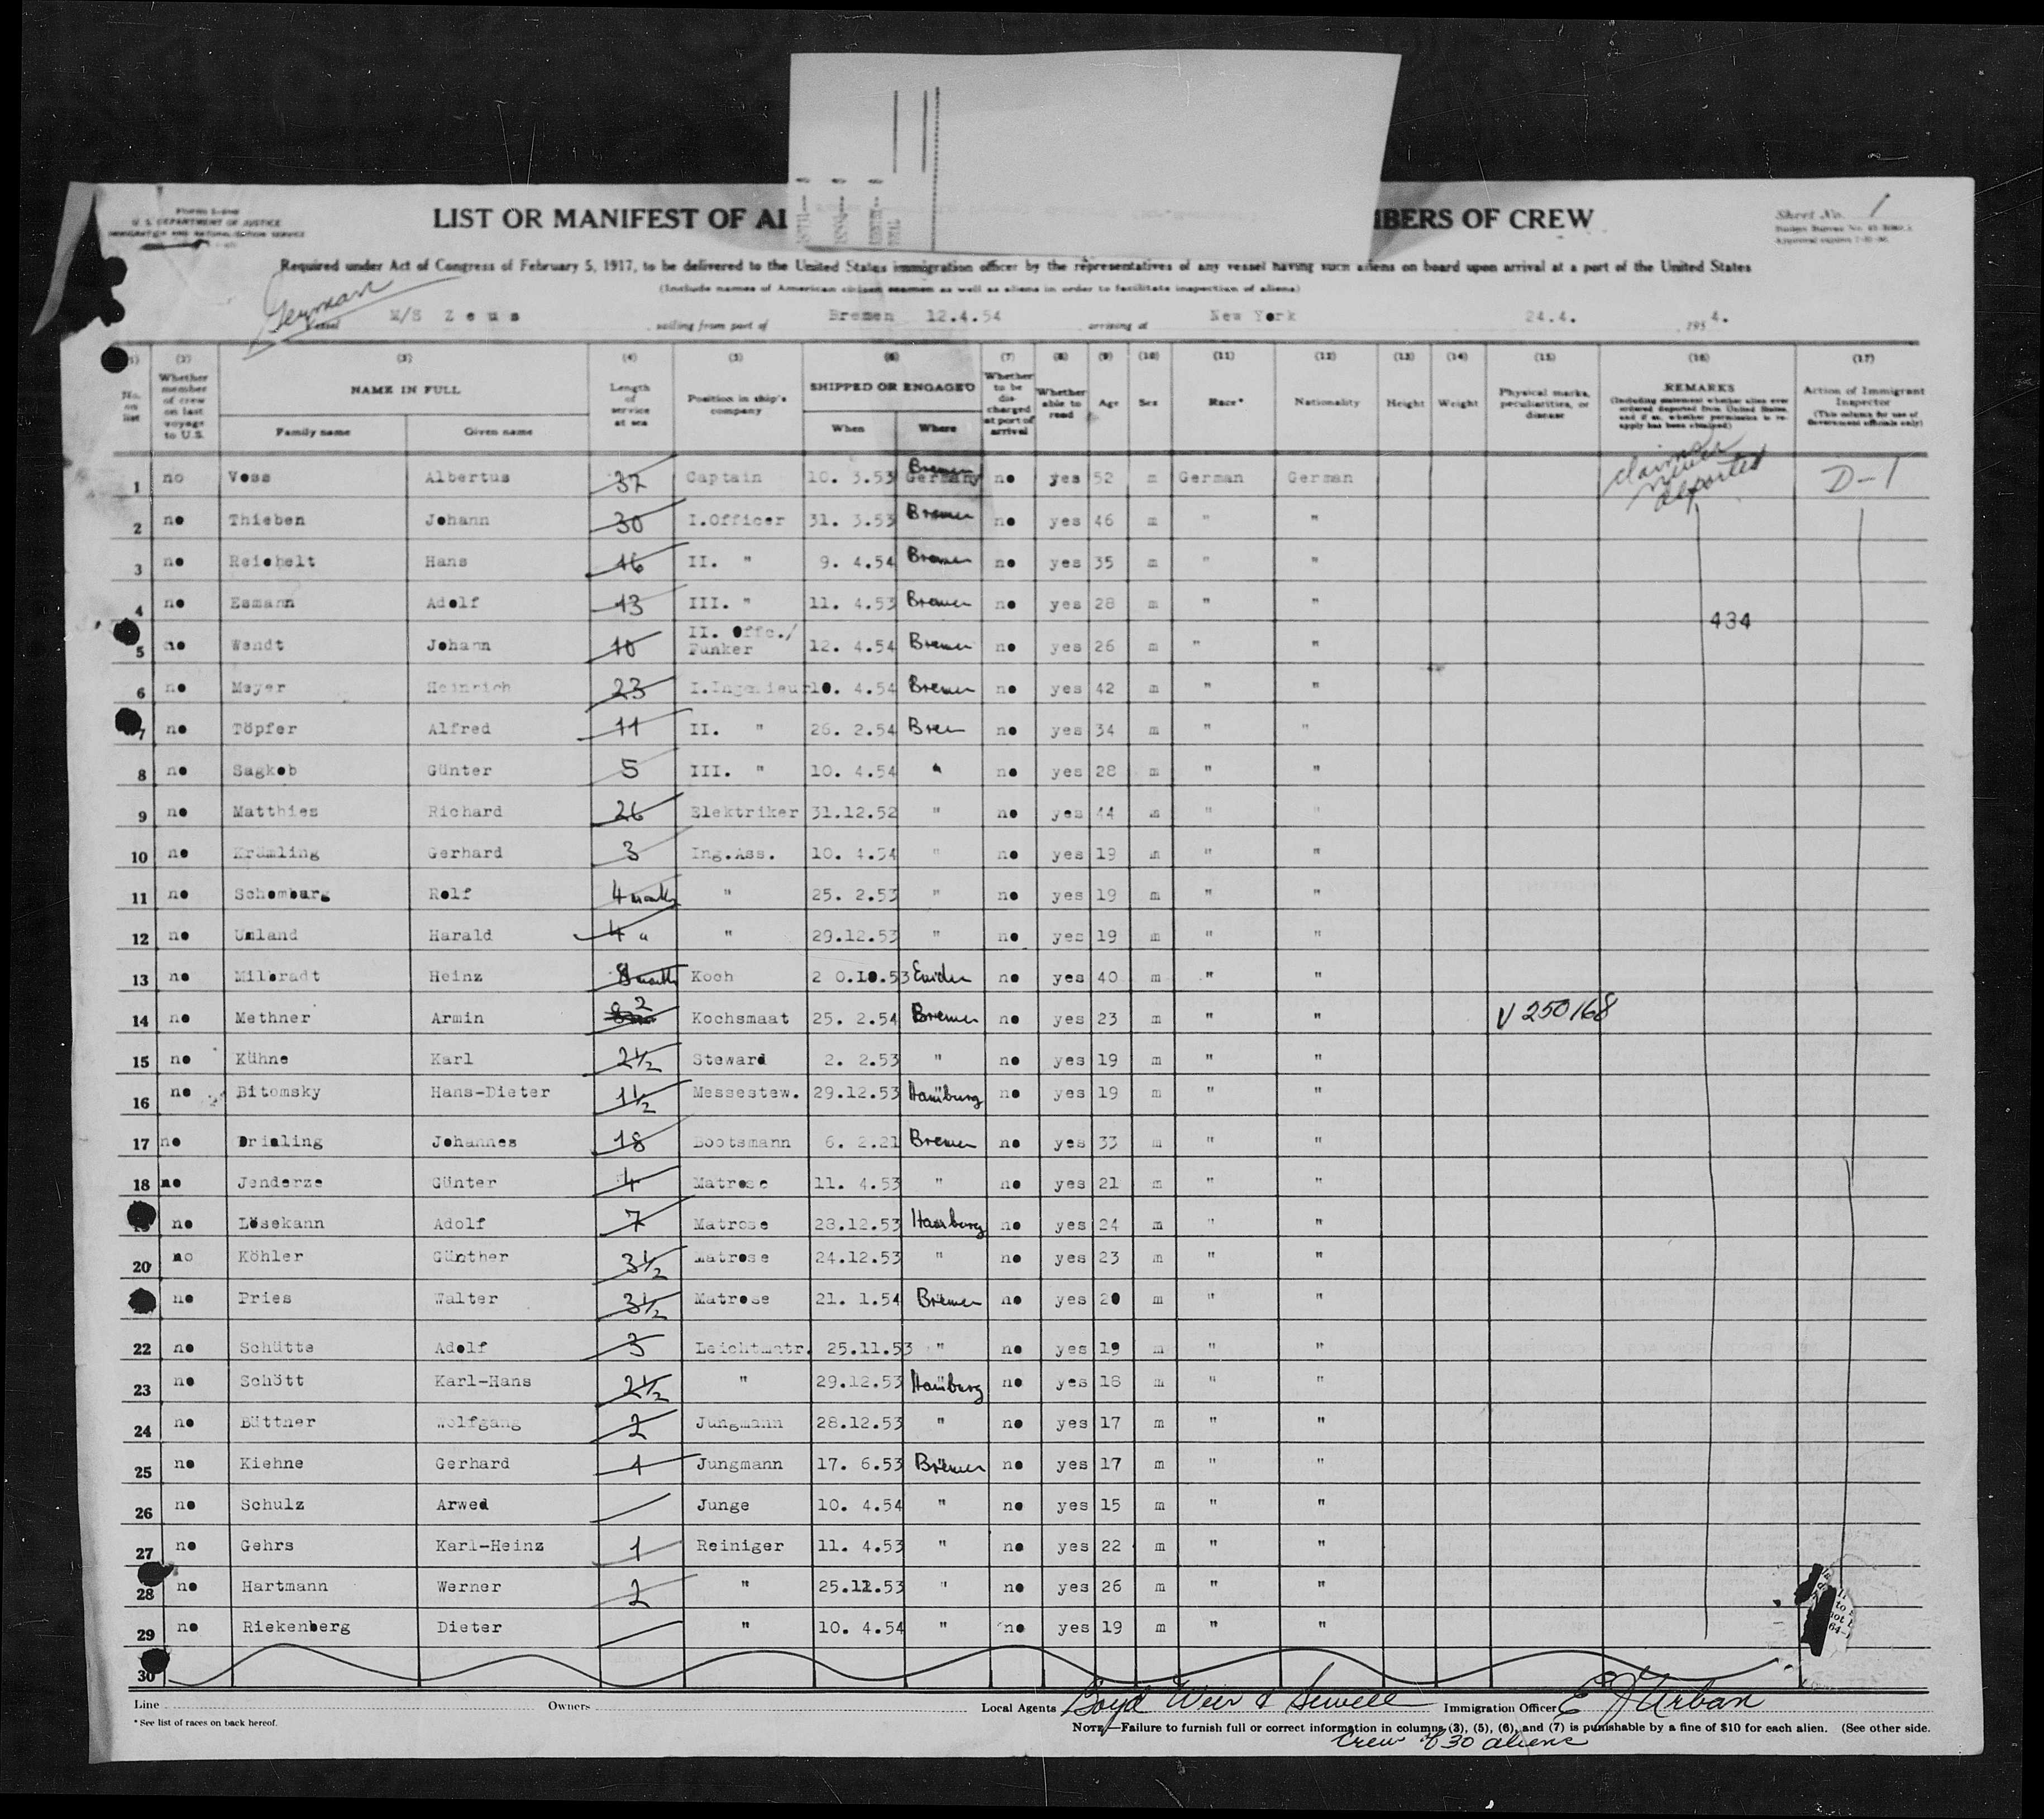 Form I-480
U. S. DEPARTMENT OF JUSTICE
IMMIGRATION AND NATURALIZATION SERVICE
LIST OR MANIFEST OF AL
MBERS OF CREW
Sheet No. 1
Required under Act of Congress of February 5, 1917, to be delivered to the United States immigration officer by the representatives of any vessel having such aliens on board upon arrival at a port of the United States
(Include names of American citizen seamen as well as aliens in order to facilitate inspection of aliens)
German
Vessel M/S Zeus sailing from port of Bremen 12.4.54 arriving at New York 24.4. 1954.
(1) (2) (3) (4) (5) (6) (7) (8) (9) (10) (11) (12) (13) (14) (15) (16) (17)
No. on list
Whether member of crew on last voyage to U.S.
NAME IN FULL
Family name
Given name
Length of service at sea
Position in ship's company
SHIPPED OR ENGAGED
When
Where
Whether to be discharged at port of arrival
Whether able to read
Age
Sex
Race*
Nationality
Height
Weight
Physical marks, peculiarities, or disease
REMARKS
(Including statement whether alien ever ordered deported from United States, and if so, whether permission to reapply has been obtained)
Action of Immigrant Inspector
(This column for use of Government officials only)
1 no Voss Albertus 37 Captain 10. 3.53 Bremen Germany no yes 52 m German German claims never deported D-1
2 no Thieben Johann 30 I.Officer 31. 3.53 Bremen no yes 46 m " "
3 no Reichelt Hans 16 II. " 9. 4.54 Bremen no yes 35 m " "
4 no Esmann Adolf 13 III. " 11. 4.53 Bremen no yes 28 m " "
434
5 no Wendt Johann 10 II. Offc./ Funker 12. 4.54 Bremen no yes 26 m " "
6 no Meyer Heinrich 23 I.Ingenieur 10. 4.54 Bremen no yes 42 m " "
7 no Töpfer Alfred 11 II. " 26. 2.54 Brem no yes 34 m " "
8 no Sagkob Günter 5 III. " 10. 4.54 " no yes 28 m " "
9 no Matthies Richard 26 Elektriker 31.12.52 " no yes 44 m " "
10 no Krümling Gerhard 3 Ing.Ass. 10. 4.54 " no yes 19 m " "
11 no Schomburg Rolf 4 months " 25. 2.53 " no yes 19 m " "
12 no Umland Harald 4 " " 29.12.53 " no yes 19 m " "
13 no Milbradt Heinz 8 months Koch 2 0.10.53 Emden no yes 40 m " "
14 no Methner Armin 2 Kochsmaat 25. 2.54 Bremen no yes 23 m " " V 250168
15 no Kühne Karl 2 1/2 Steward 2. 2.53 " no yes 19 m " "
16 no Bitomsky Hans-Dieter 1 1/2 Messestew. 29.12.53 Hamburg no yes 19 m " "
17 no Drialing Johannes 18 Bootsmann 6. 2.21 Bremen no yes 33 m " "
18 no Jenderze Günter 4 Matrose 11. 4.53 " no yes 21 m " "
no Lösekann Adolf 7 Matrose 28.12.53 Hamburg no yes 24 m " "
20 no Köhler Günther 3 1/2 Matrose 24.12.53 " no yes 23 m " "
no Pries Walter 3 1/2 Matrose 21. 1.54 Bremen no yes 20 m " "
22 no Schütte Adolf 3 Leichtmatr. 25.11.53 " no yes 19 m " "
23 no Schött Karl-Hans 2 1/2 " 29.12.53 Hamburg no yes 18 m " "
24 no Büttner Wolfgang 2 Jungmann 28.12.53 " no yes 17 m " "
25 no Kiehne Gerhard 1 Jungmann 17. 6.53 Bremen no yes 17 m " "
26 no Schulz Arwed Junge 10. 4.54 " no yes 15 m " "
27 no Gehrs Karl-Heinz 1 Reiniger 11. 4.53 " no yes 22 m " "
28 no Hartmann Werner 2 " 25.11.53 " no yes 26 m " "
29 no Riekenberg Dieter " 10. 4.54 " no yes 19 m " "
30
Line Owners Local Agents Boyd Weir & Sewell Immigration Officer E J Urban
* See list of races on back hereof.
NOTE—Failure to furnish full or correct information in columns (3), (5), (6), and (7) is punishable by a fine of $10 for each alien. (See other side.
Crew of 30 aliens